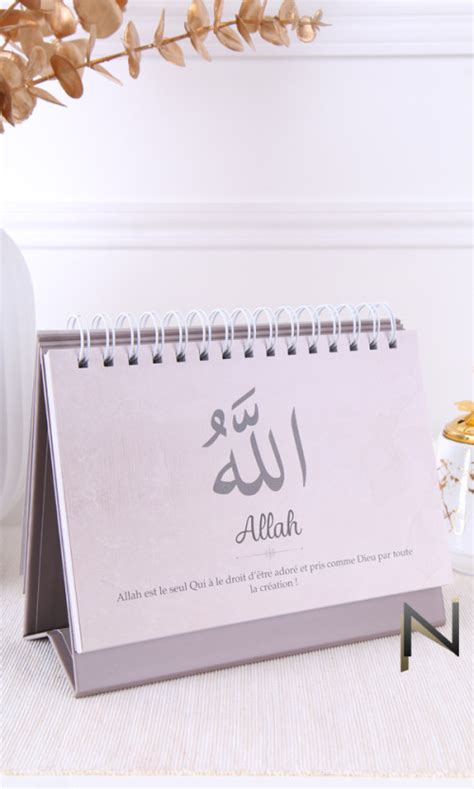 اللَّهُ
Allah
Allah est le seul Qui à le droit d'être adoré et pris comme Dieu par toute
la création !
N